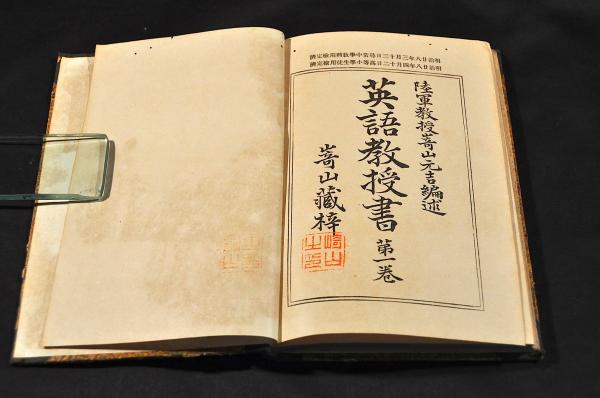 明治廿八年三月十二日尋常中學敎科用檢定濟
明治廿八年四月十二日高等小學生徒用檢定濟
陸軍教授嵜山元吉編述
英語教授書 第一卷
嵜山藏梓
崎山之印